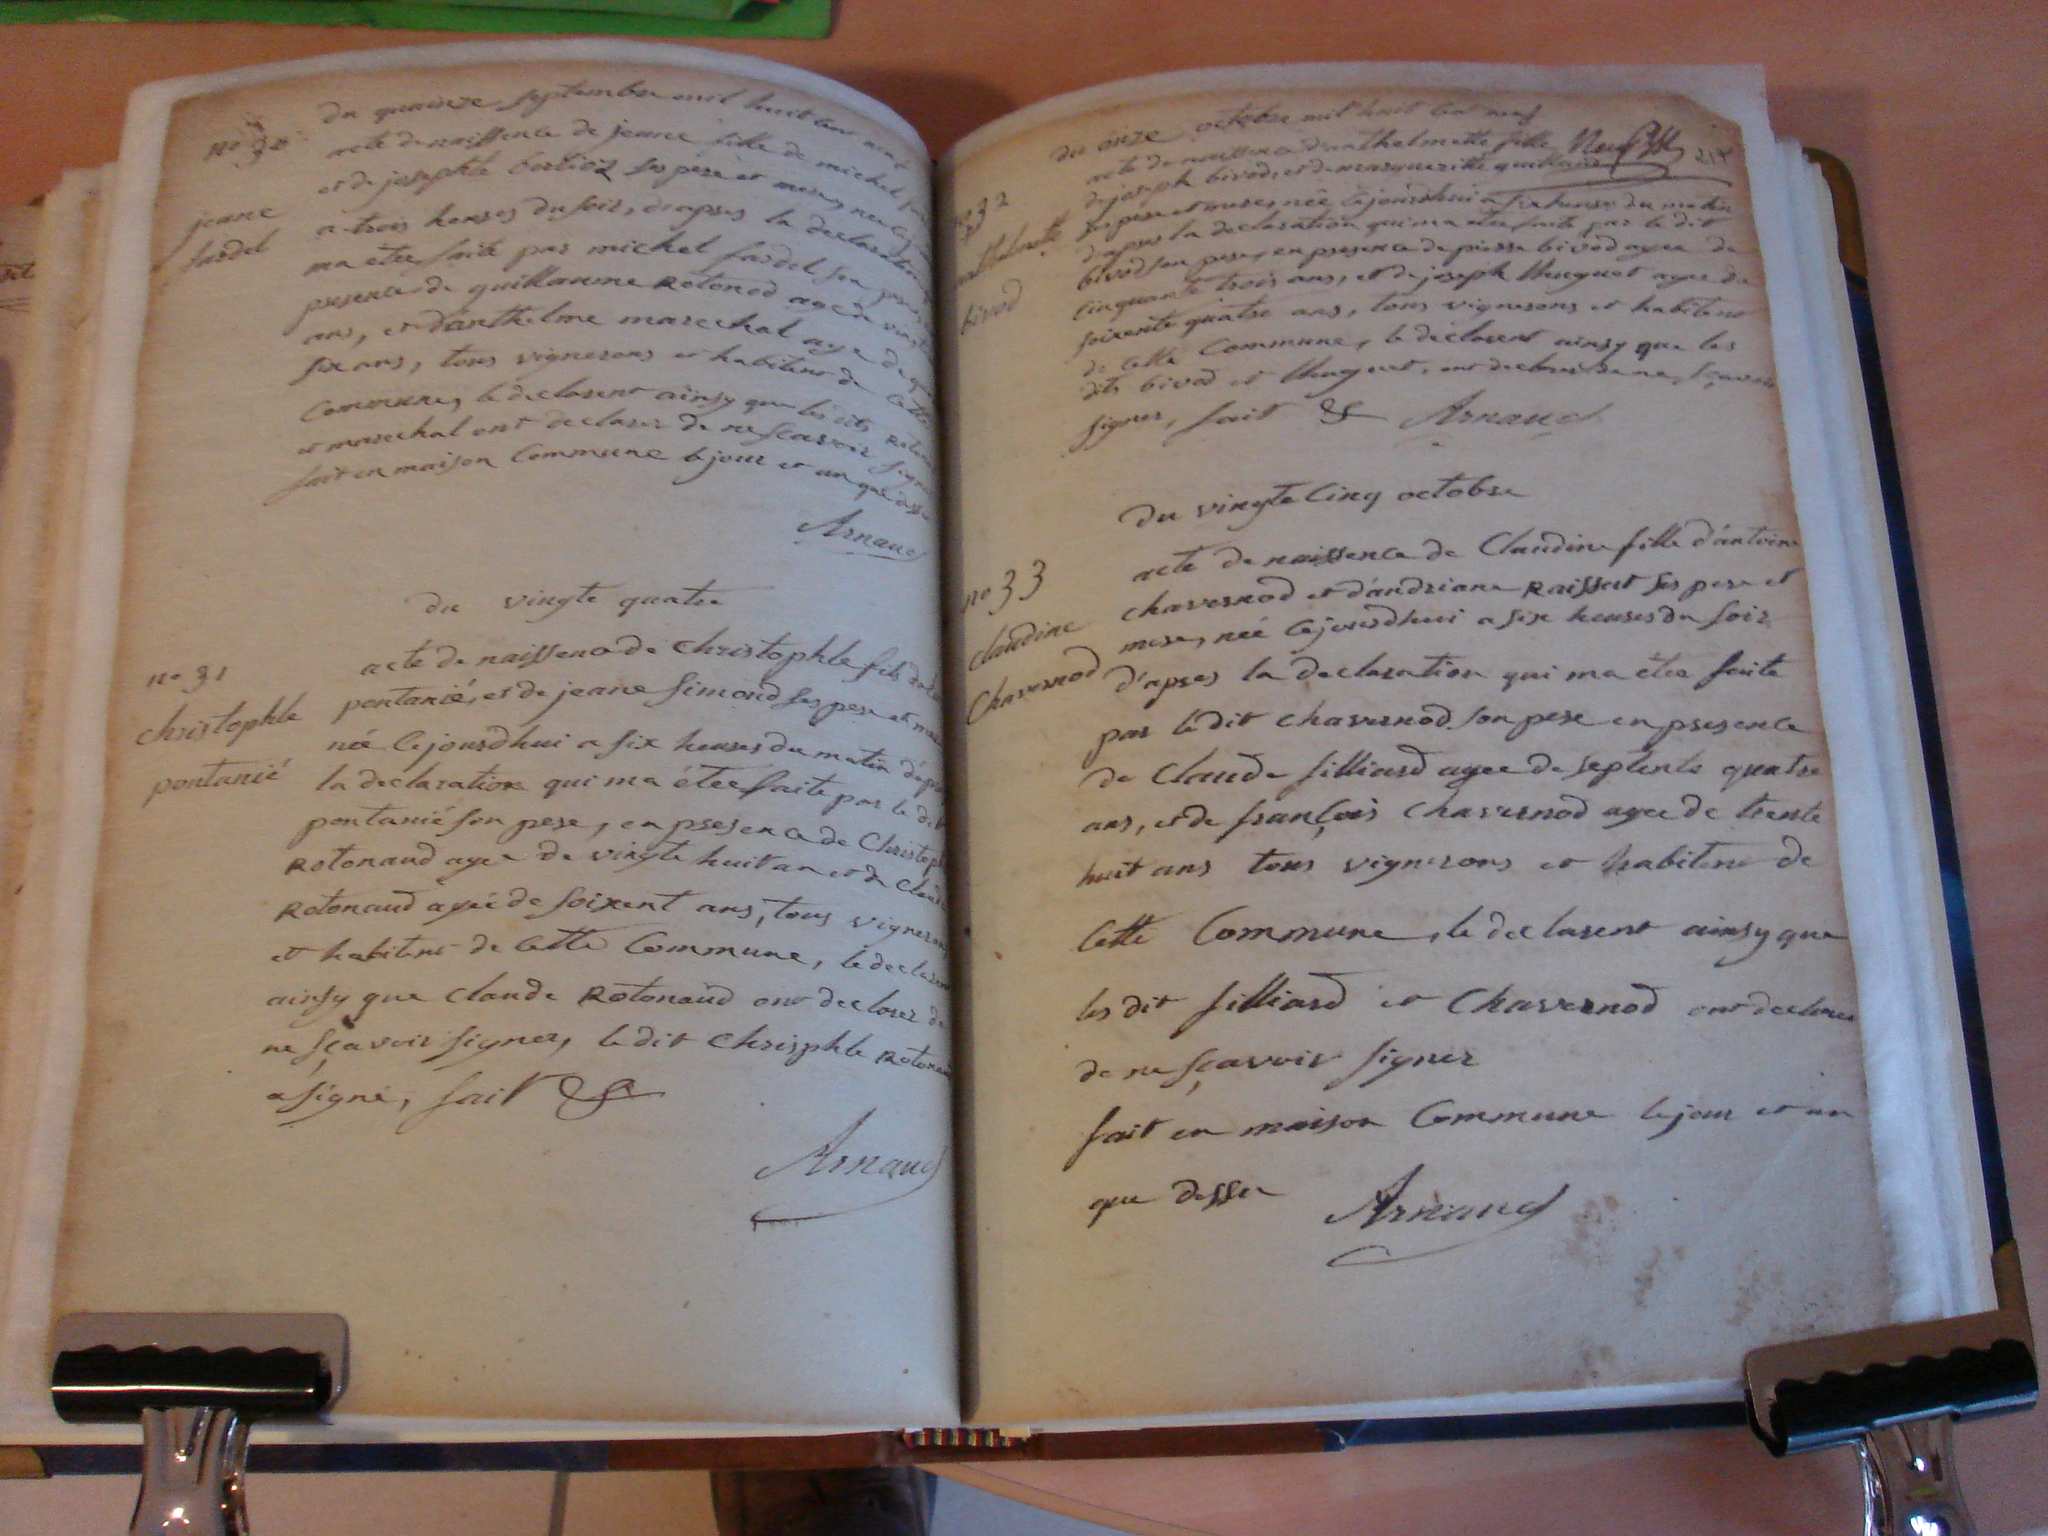 du quinze septembre mil huit cent neuf
no 30
acte de naissence de jeane fille de michel
et de josephte berlioz ses pere et mere, née
jeane
fardel
a trois heures du soir, d'apres la declaration
ma etee faite par michel fardel son pere
presence de guillaume Rotonod agee de vingt
ans, et d'anthelme marechal agee de
six ans, tous vignerons et habitent de cette
Commune, le declarent ainsy que les dits
et marechal ont declarer de ne sçavoir signer
fait en maison Commune le jour et an que dessu
Arnaud
du vingte quatre
no 31
christophle
pontanié
acte de naissence de Christophle fils
pontanié, et de jeane Simond ses pere et mere
née cejourdhui a six heures du matin d'apres
la declaration qui ma étee faite par le dit
pontanié son pere, en presence de Christophle
Rotonaud agee de vingte huit an et de Claude
Rotonaud agéé de soixent ans, tous vignerons
et habitent de cette Commune, le declarent
ainsy que claude Rotonaud ont declarer de
ne sçavoir signer, le dit Chrisphle Rotonaud
a signé, fait &
Arnaud
du onze octobre mil huit cent neuf
217
no 32
anthelmette
bivod
acte de naissence d'anthelmette fille
de joseph bivod, et de margueritte guilland
ses pere et mere, née cejourdhui a six heures du matin
d'apres la declaration qui ma etee faite par le dit
bivod son pere, en presence de pierre bivod agee de
cinquante trois ans, et de joseph Huguet agee de
soixente quatre ans, tous vignerons et habitent
de cette Commune, le declarent ainsy que les
dits bivod et Huguet, ont declarer de ne, sçavoir
signer, fait & Arnaud
du vingte cinq octobre
no 33
claudine
Chavernod
acte de naissence de Claudine fille d'antoine
chavernod et d'andriane Raissert ses pere et
mere, née cejourdhui a six heures du soir
d'apres la declaration qui ma étee faite
par le dit chavernod son pere en presence
de Claude silliard agee de septente quatre
ans, et de françois chavernod agee de trente
huit ans tous vignerons et habitent de
cette Commune, le declarent ainsy que
les dit silliard et Chavernod ont declarer
de ne sçavoir signer
fait en maison Commune le jour et an
que dessu Arnaud